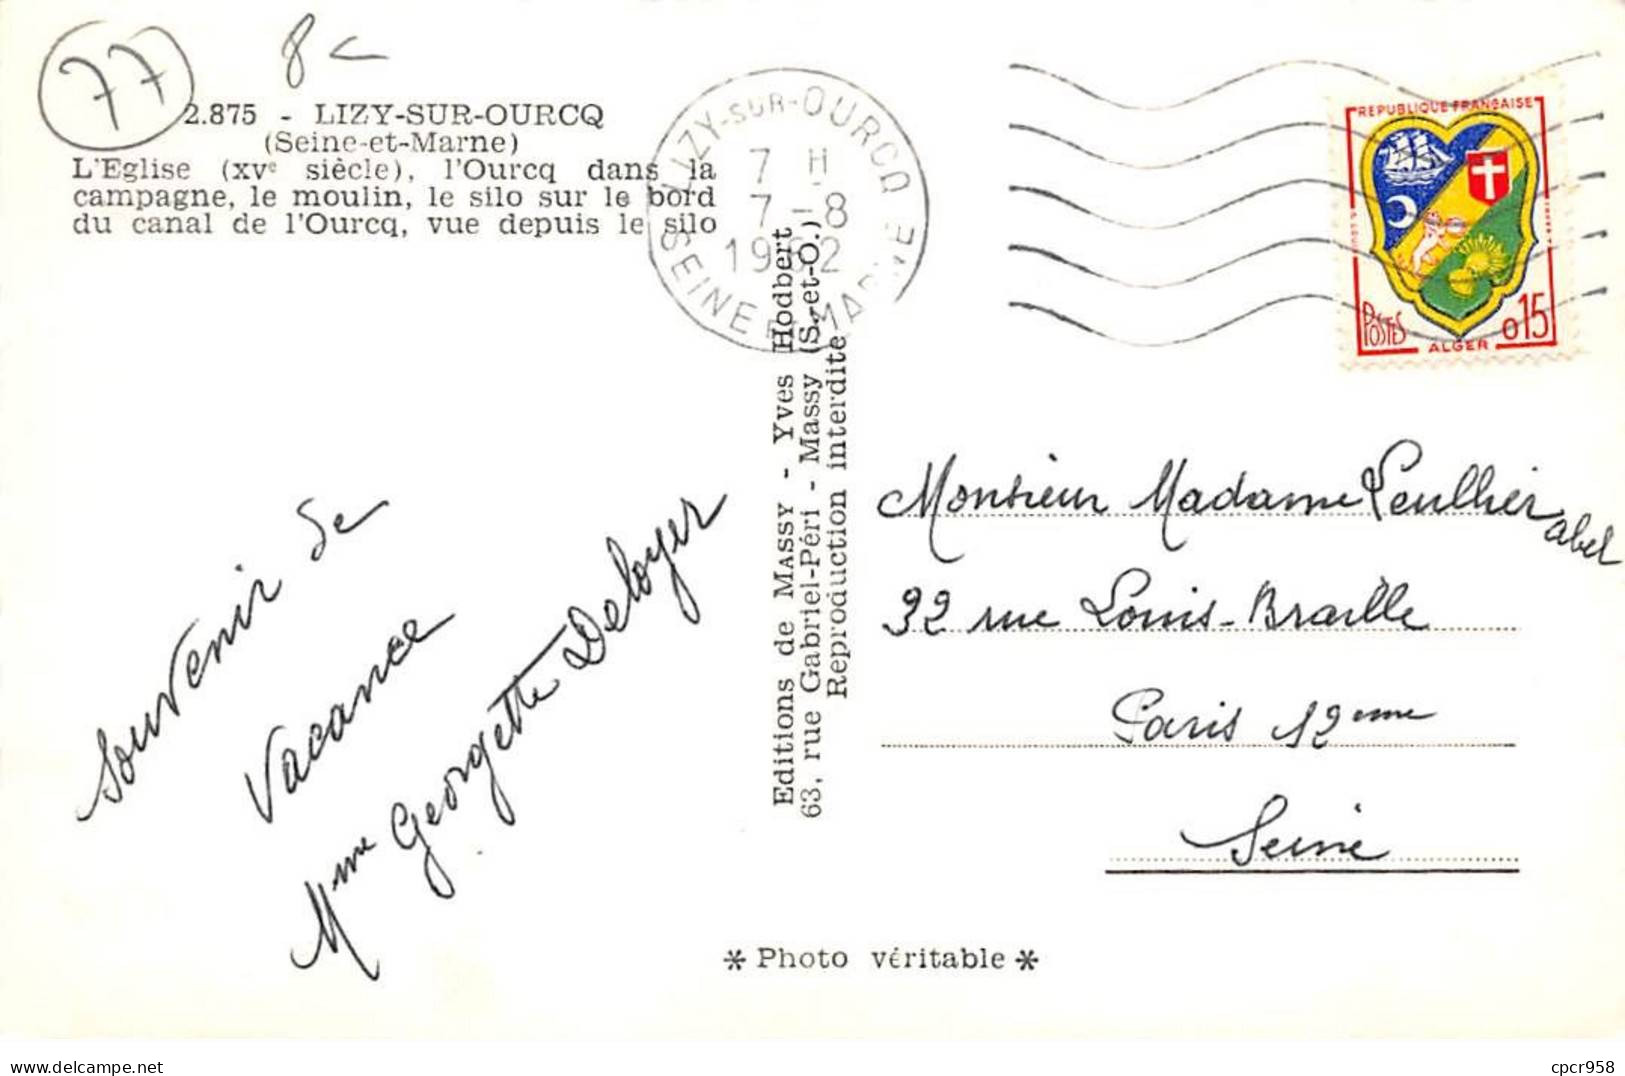 77
8
2.875 - LIZY-SUR-OURCQ
(Seine-et-Marne)
L'Eglise (XVe siècle), l'Ourcq dans la
campagne, le moulin, le silo sur le bord
du canal de l'Ourcq, vue depuis le silo
LIZY-SUR-OURCQ
7 H
7-8
1962
SEINE ET MARNE
REPUBLIQUE FRANÇAISE
POSTES
ALGER
0,15
Souvenir de
Vacance
Mme Georgette Deloyer
Editions de MASSY - Yves Hodbert
63, rue Gabriel-Péri - Massy (S.-et-O.)
Reproduction interdite
Monsieur Madame Leullier
abel
32 rue Louis-Braille
Paris 12eme
Seine
* Photo véritable *
cpcr958